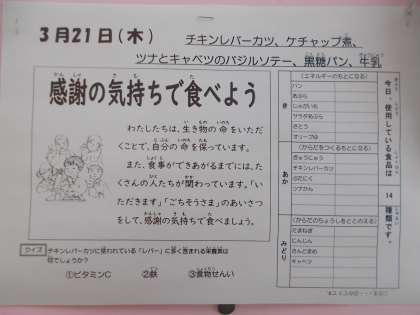 3月21日(木)
チキンレバーカツ、ケチャップ煮、
ツナとキャベツのバジルソテー、黒糖パン、牛乳
感謝の気持ちで食べよう
わたしたちは、生き物の命をいただ
くことで、自分の命を保っています。
また、食事ができあがるまでには、た
くさんの人たちが関わっています。「い
ただきます」「ごちそうさま」のあいさつ
をして、感謝の気持ちで食べましょう。
クイズ
チキンレバーカツに使われている「レバー」に多く含まれる栄養素は
何でしょうか?
①ビタミンC ②鉄 ③食物せんい
今日、使用している食品は 14 種類です。
き
(エネルギーのもとになる)
パン
あぶら
じゃがいも
サラダあぶら
さとう
オリーブゆ
あか
(からだをつくるもとになる)
ぎゅうにゅう
チキンレバーカツ
ぶたにく
ツナかん
みどり
(からだのちょうしをととのえる)
たまねぎ
にんじん
キャベツ